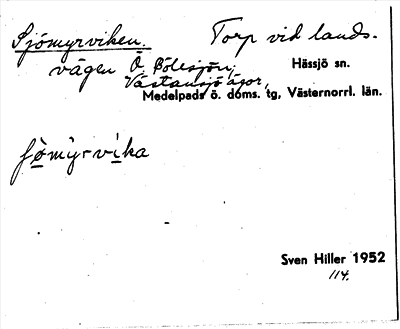 Sjömyrviken. Torp vid lands-
vägen O. Bölesjön, Hässjö sn.
Västansjö ägor,
Medelpads ö. doms. tg, Västernorrl. län.
vika
Sven Hiller 1952
114.